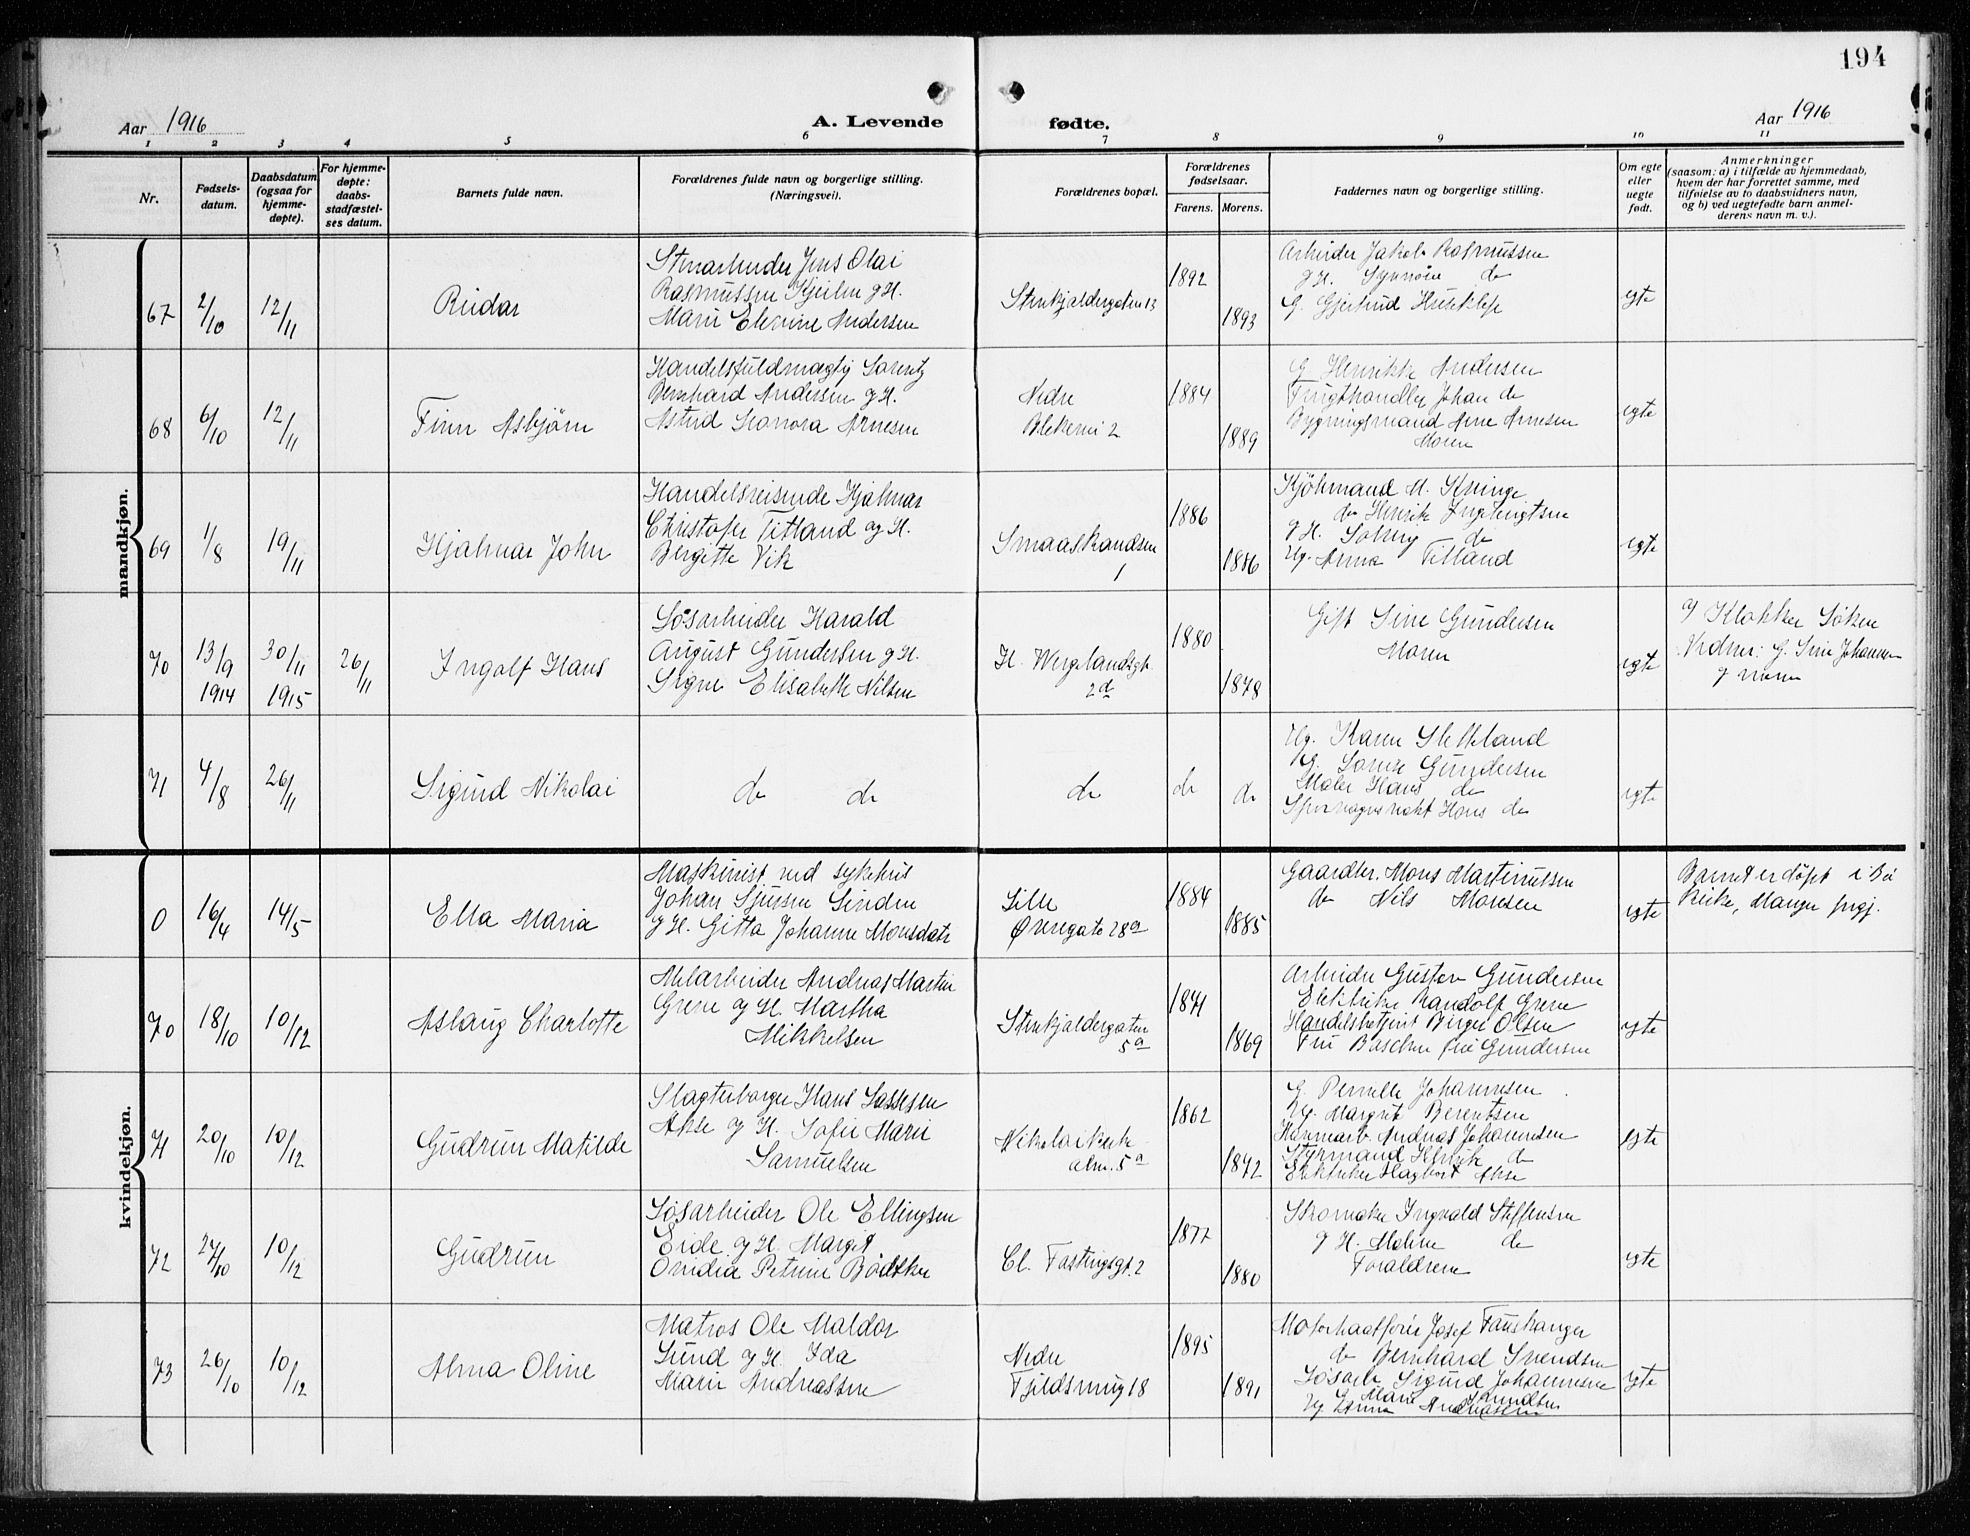 194
Aar 1916
A. Levende fødte.
Aar 1916
1 2 3 4 5 6 7 8 9 10 11
Nr.
Fødsels-
datum.
Daabsdatum
(ogsaa for
hjemme-
døpte).
For hjemme-
døpte:
daabs-
stadfæstel-
ses datum.
Barnets fulde navn.
Forældrenes fulde navn og borgerlige stilling.
(Næringsvei).
Forældrenes bopæl.
Forældrenes
fødselsaar.
Farens. Morens.
Faddernes navn og borgerlige stilling.
Om egte
eller
uegte
født.
Anmerkninger
(saasom: a) i tilfælde av hjemmedaab,
hvem der har forrettet samme, med
tilføielse av to daabsvidners navn,
og b) ved uegtefødte barn anmel-
derens navn m. v.).
mandkjøn.
67
2/10
12/11
Reidar
Stenarbeider Jens Olai
Rasmussen Kjeilen g H.
Marie Elevine Andersen
Stenkjeldergaten 13
1892
1893
Arbeider Jakob Rasmussen
g H. Synnøve do
G. Gjertrud Huseklep
egte
68
6/10
12/11
Finn Asbjørn
Handelsfuldmægtig Lorentz
Bernhard Andersen g H.
Astrid Leonora Arnesen
Nedre
Blekevei 2
1884
1889
G Henrikke Andersen
Frugthandler Johan do
Bygningsmand Arne Arnesen
Moren
egte
69
1/8
19/11
Hjalmar John
Handelsreisende Hjalmar
Christofer Titland og H.
Bergitte Vik
Smaaskandsen
1
1886
1886
Kjøbmand M. Kringe
do Henrik Ingebrigtsen
g H. Solveig do
Ug. Anna Titland
egte
70
13/9
1914
30/11
1915
26/11
Ingolf Hans
Løsarbeider Harald
August Gundersen g H.
Signe Elisabeth Nilsen
H. Wergelandsgt.
2d
1880
1878
Gift Sine Gundersen
Moren
egte
g Klokker Søken
Vidner: g. Sine Johannes
g moren
71
4/8
26/11
Sigurd Nikolai
do do
do
do
do
Ug. Karen Sletteland
Ug. Lovise Gundersen
Maler Hans do
Sporvognsvakt Hans do
egte
kvindekjøn.
0
16/4
14/5
Ella Maria
Maskinist ved sykehus
Johan Sjursen Sindre
g H. Gitta Johanne Monsdatr
Lille
Øvregate 28a
1884
1885
Gaardbr. Mons Martinussen
do Nils Monsen
egte
Barnet er døpt i Bø
Kirke, Manger prgj.
70
18/10
10/12
Aslaug Charlotte
Melarbeider Andreas Martin
Greve og H. Martha
Mikkelsen
Stenkjeldergaten
5a
1871
1869
Arbeider Gustav Gundersen
Elektriker Randolf Greve
Handelsbetjent Birger Olsen
Fru Buschen fru Gundersen
egte
71
20/10
10/12
Gudrun Matilde
Slagterborger Hans Lassesen
Akse g H. Sofie Marie
Samuelsen
Nikolaikirke
alm. 5a
1862
1872
G. Pernille Johannesen
Ug. Margrit Berentsen
Havnearb. Andreas Johannesen
Styrmand Henrik do
Elektriker Hagbart Akse
egte
72
27/10
10/12
Gudrun
Løsarbeider Ole Ellingsen
Eide g H. Margit
Ovidia Petrine Bødtker
Cl. Fastingsgt. 2
1877
1880
Skomaker Ingvald Steffensen
g H. Maline do
Forældrene
egte
73
26/10
10/12
Alma Oline
Matros Ole Maldor
Sund og H. Ida
Marie Andreassen
Nedre
Fjeldsmug 18
1895
1891
Motorbaatfører Josef Fauskanger
do Bernhard Svendsen
Løsarb. Sigurd Johannesen
Marie Knudsen
Ug. Anna Andreasen
egte